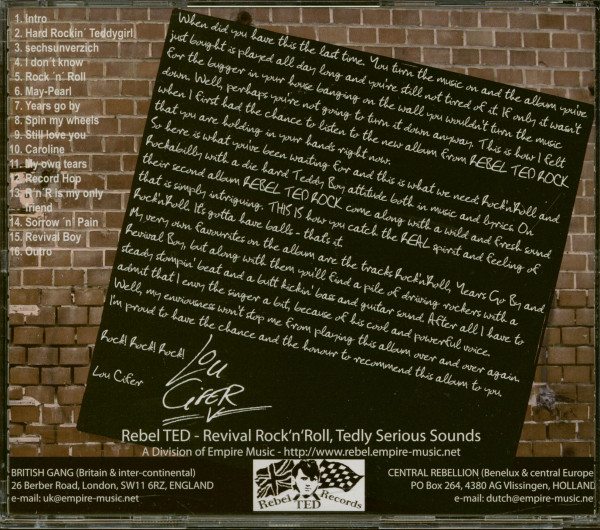 1. Intro
2. Hard Rockin´ Teddygirl
3. sechsunverzich
4. I don´t know
5. Rock ´n´ Roll
6. May-Pearl
7. Years go by
8. Spin my wheels
9. Still love you
10. Caroline
11. My own tears
12. Record Hop
13. R´n´R is my only
friend
14. Sorrow ´n´ Pain
15. Revival Boy
16. Outro
When did you have this the last time. You turn the music on and the album you've
just bought is played all day long and you're still not tired of it. If only it wasn't
for the bugger in your house banging on the wall you wouldn't turn the music
down. Well, perhaps you're not going to turn it down anyway. This is how I felt
when I first had the chance to listen to the new album from REBEL TED ROCK
that you are holding in your hands right now.
So here is what you've been waiting for and this is what we need: Rock'n'Roll and
Rockabilly with a die hard Teddy Boy attitude both in music and lyrics. On
their second album REBEL TED ROCK come along with a wild and fresh sound
that is simply intriguing. THIS is how you catch the REAL spirit and feeling of
Rock'n'Roll. It's gotta have balls - that's it.
My very own favourites on the album are the tracks Rock'n'Roll, Years Go By and
Revival Boy, but along with them you'll find a pile of driving rockers with a
steady stompin' beat and a butt kickin' bass and guitar sound. After all I have to
admit that I envy the singer a bit, because of his cool and powerful voice.
Well, my enviousness won't stop me from playing this album over and over again.
I'm proud to have the chance and the honour to recommend this album to you.
Rock! Rock! Rock!
Lou Cifer
LOU
CIFER
Rebel TED - Revival Rock'n'Roll, Tedly Serious Sounds
A Division of Empire Music - http://www.rebel.empire-music.net
BRITISH GANG (Britain & inter-continental)
26 Berber Road, London, SW11 6RZ, ENGLAND
e-mail: uk@empire-music.net
Rebel Records
TED
CENTRAL REBELLION (Benelux & central Europe
PO Box 264, 4380 AG Vlissingen, HOLLAND
e-mail: dutch@empire-music.ne